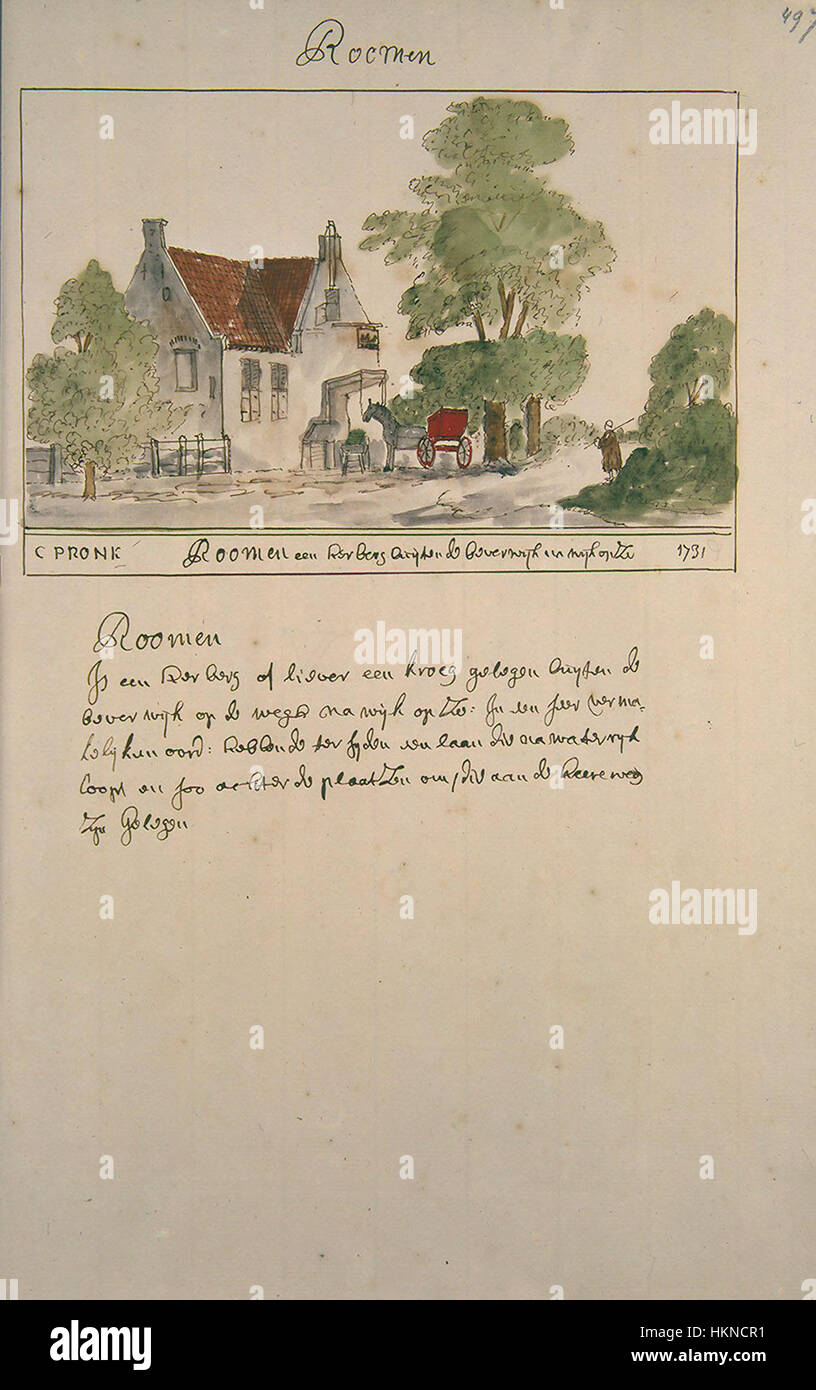 497
Roomen
C PRONK Roomen een Herberg buyten de beverwyk na wyk op Zee 1731
Roomen
Is een Herberg of liever een kroeg gelegen buyten de
beverwyk op de weg na wyk op Zee: In een seer verma-
kelyken oord: Hebbende ter syden een laan die na waterryk
loopt en soo achter de plaatzen om, die aan de Heere weg
zyn Gelegen
alamy
alamy
alamy
alamy
a a
a a a
a a a
a a
a a a
alamy
Image ID: HKNCR1
www.alamy.com